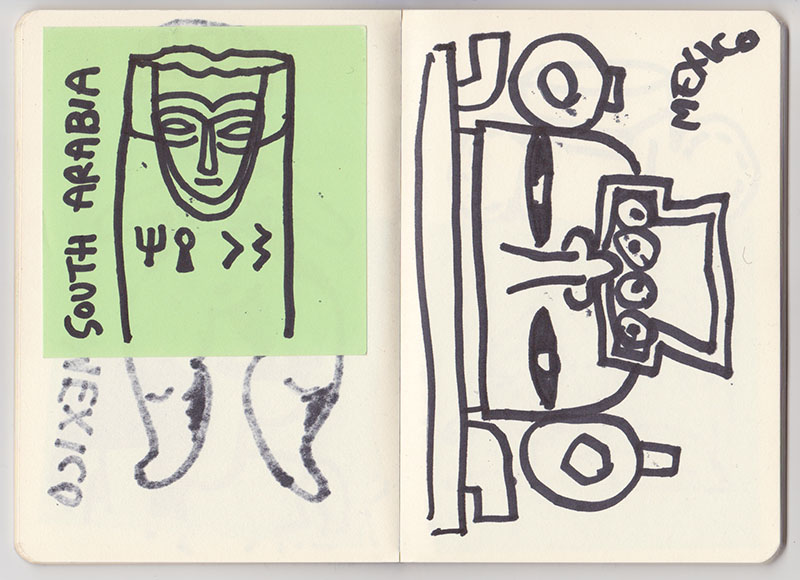 SOUTH ARABIA
MEXICO
MEXICO